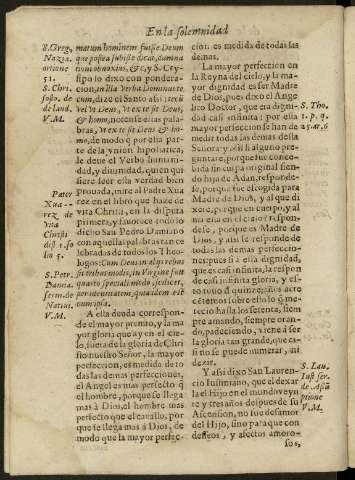 En la solemnidad
S. Greg.
Nazia.
oratione
51.
S. Chri.
sosto. de
de laud.
V. M.
Pater
Xua
rez de
vita
Christi
dis. 1. so
lū 5.
S. Petr.
Damia.
serm. de
Natiui.
V. M.
matum hominem fuisse Deum
que postea subiisse dicat, damna
tioni obnoxius, &c, y S. Cry-
sipo lo dixo con pondera-
cion, in illa Verba Dominus te
cum, dize el Santo assi:
& homo, notense estas palabras,
mo, de modo q̃ por ella par
te de la vnion hipostatica,
le deue el Verbo humani-
dad, y diuinidad, quien qui
siere leer esta verdad bien
prouada, mire al Padre Xua
rez en el libro que haze de
vita Christi, en la disputa
primera, y fauorece todo lo
dicho San Pedro Damiano
con aquellas palabras tan ce
lebradas de todos los Theo-
logos: Cum Deus in alijs rebus
sit tribus modis, in Virgine fuit
quarto speciali modo scilicet,
per identitatem, quia idem est
quod ipsa.
A esta deuda correspon-
de el mayor premio, y la ma
yor gloria que ay en el cie-
lo, fuera de la gloria de Chri
sto nuestro Señor, la mayor
perfeccion, es medida de to
das las demas perfecciones,
el Angel es mas perfecto q̃
el hombre, porque se llega
mas à Dios, el hombre mas
perfecto que el cauallo, por
que se llega mas à Dios, de
modo que la mayor perfec-
cion, es medida de todas las
demas.
La mayor perfeccion en
la Reyna del cielo, y la ma-
yor dignidad es ser Madre
de Dios, pues dixo el Ange
lico Doctor, que era digni-
dad casi infinita: con esta
mayor perfeccion se han de
medir todas las demas desta
Señora: y assi si alguno pre-
guntare, porque fue conce-
bida sin culpa original sien-
do hija de Adan, responde-
se, porque fue escogida para
Madre de Dios, y al que di
xere, porque en cuerpo, y al
ma està en el cielo? respon-
dese, porque es Madre de
Dios, y assi se responde de
todas las demas perfeccio-
nes; pues si a esta dignidad,
que es casi infinita, la respon
de casi infinita gloria, y es-
to todo à quatro ò cinco acto
cetemos sobre esto lo q̃ me-
recio hasta los setenta, siem
pre amando, siempre oran-
do, padeciendo, viene à ser
la gloria tan grande, que ca-
si no se puede numerar, ni
dezir.
Y assi dixo San Lauren-
cio Iustiniano, que el dexar
la el Hijo en el mundo veyn
te y tres años despues de su
Ascension, no fue desamor
del Hijo, sino para que con
desseos, y afectos amoro-
sos,
S. Tho.
1. p. q.
25. ar. 6
S. Lau.
Iust. ser.
de Assũ
ptione
V. M.